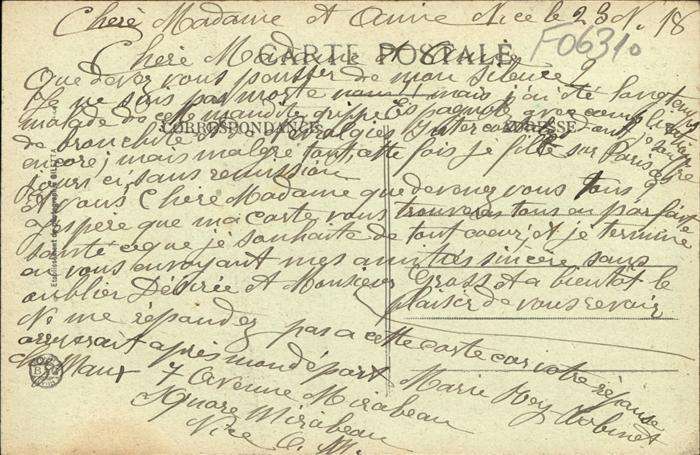 Cherè Madame et Amie Nice le 23 N. 18
F06310
CARTE POSTALE
Cherè Madame et Amie
Que devez vous pensser de mon silence ?
Je ne suis pas morte mais j'ai été longtemps
malade de cette maudite grippe Espagnole avec complication
CORRESPONDANCE
ADRESSE
de bronchite et névralgies Intercostales dont je souffre
encore; mais malgre tout, cette fois je file sur Paris ces
jours ci, sans remission
Et vous Cherè Madame que devenez vous tous ?
J'espère que ma carte vous trouveras tous en parfaite
santé ce que je souhaite de tout coeur, et je termine
en vous envoyant mes amitiés sincère sans
oublier Désirée et Monsieur Gross et a bientot le
plaisir de vous revoir
Ne me répondez pas a cette carte car votre réponse
arriverait après mon départ Marie Rey
7 Avenue Mirabeau
Square Mirabeau
Nice A. M.